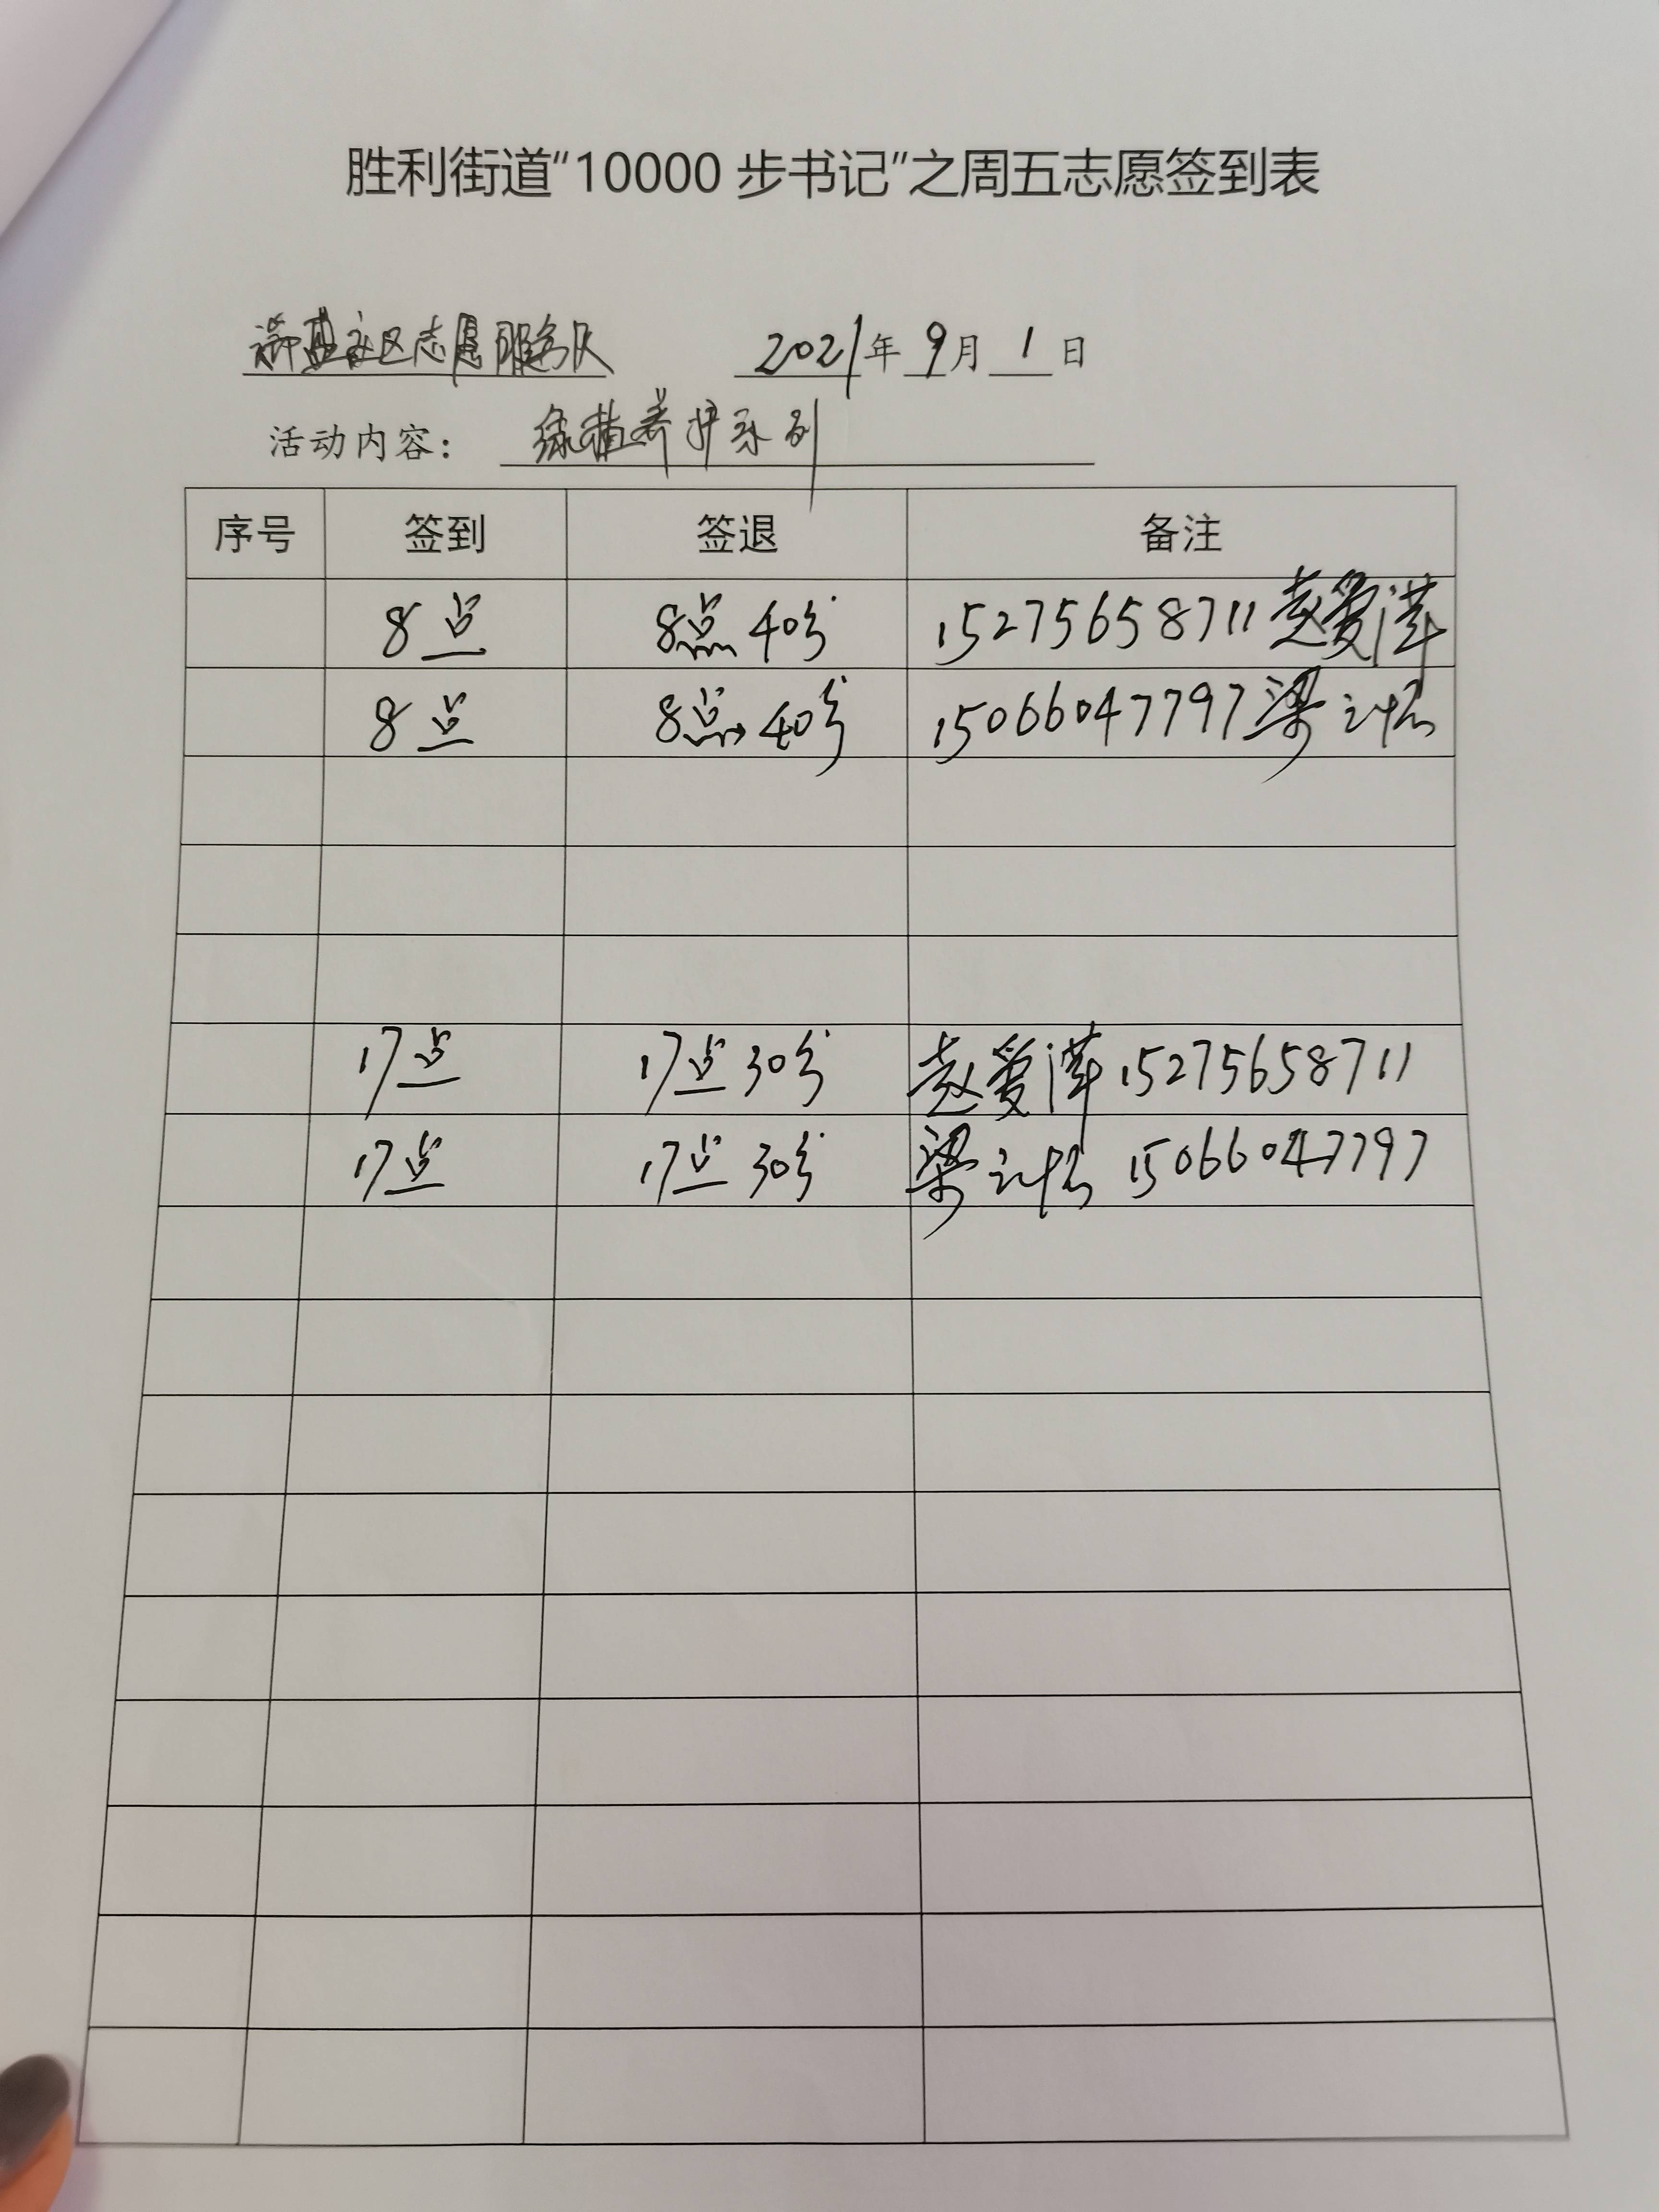 胜利街道“10000步书记”之周五志愿签到表
社区志愿服务队 2021年9月1日
活动内容： 绿植养护系列
序号 签到 签退 备注
8点 8点40分 15275658711 赵爱萍
8点 8点40分 15066047797 梁
17点 17点30分 赵爱萍 15275658711
17点 17点30分 梁 15066047797